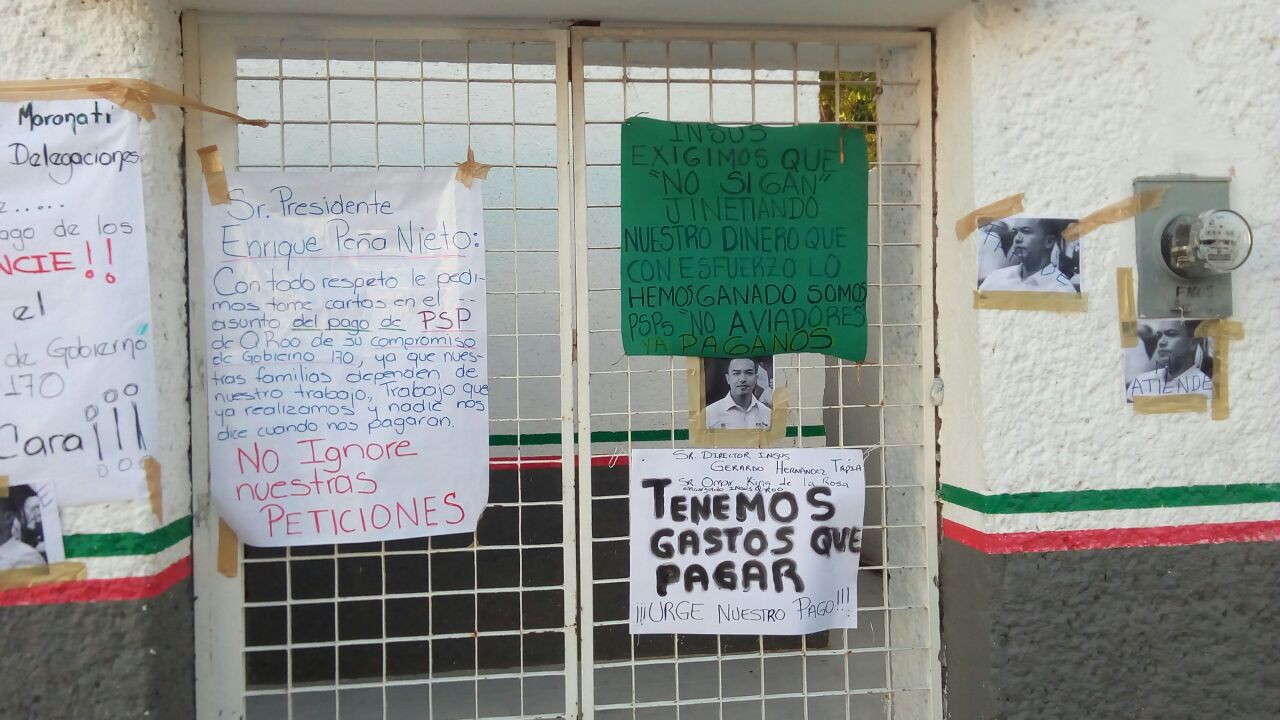 Moronati
Delegaciones
ago de los
NCIE!!
el
de Gobierno
170
Cara ¡¡¡
Sr. Presidente
Enrique Peña Nieto:
Con todo respeto le pedi-
mos tome cartas en el --
asunto del pago de PSP
de Q.Roo de su compromiso
de Gobierno 170, ya que nues-
tras familias dependen de
nuestro trabajo, Trabajo que
ya realizamos y nadie nos
dice cuando nos pagaran.
No Ignore
nuestras
PETICIONES
INSUS
EXIGIMOS QUE
"NO SIGAN"
JINETIANDO
NUESTRO DINERO QUE
CON ESFUERZO LO
HEMOS GANADO SOMOS
PSPs "NO AVIADORES"
YA PAGANOS
SR. DIRECTOR INSUS
GERARDO HERNANDEZ TAPIA
SR. OMAR KING DE LA ROSA
ENCARGADO INSUS Q.ROO
TENEMOS
GASTOS QUE
PAGAR
!!!URGE NUESTRO PAGO!!!
ATIENDE